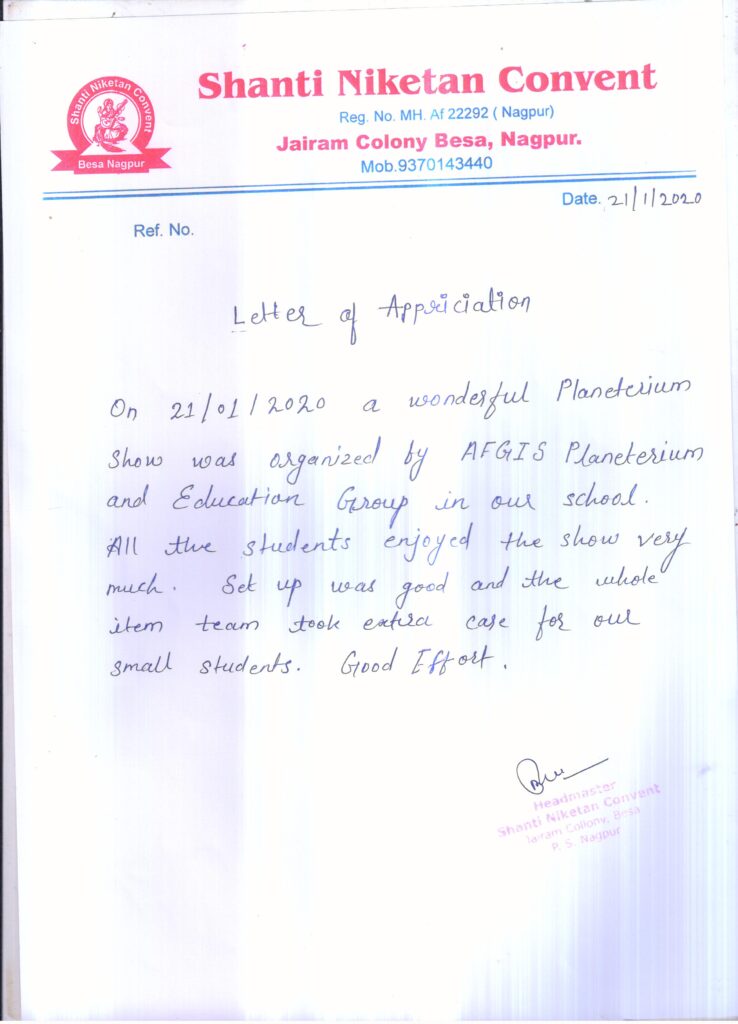 Shanti Niketan Convent
Besa Nagpur
Shanti Niketan Convent
Reg. No. MH. Af 22292 ( Nagpur)
Jairam Colony Besa, Nagpur.
Mob.9370143440
Date. 21/1/2020
Ref. No.
Letter of Appriciation
On 21/01/2020 a wonderful Planeterium
show was organized by AFGIS Planeterium
and Education Group in our school.
All the students enjoyed the show very
much. Set up was good and the whole
item team took extra care for our
small students. Good Effort.
Headmaster
Shanti Niketan Convent
Jairam Colony, Besa
P. S. Nagpur